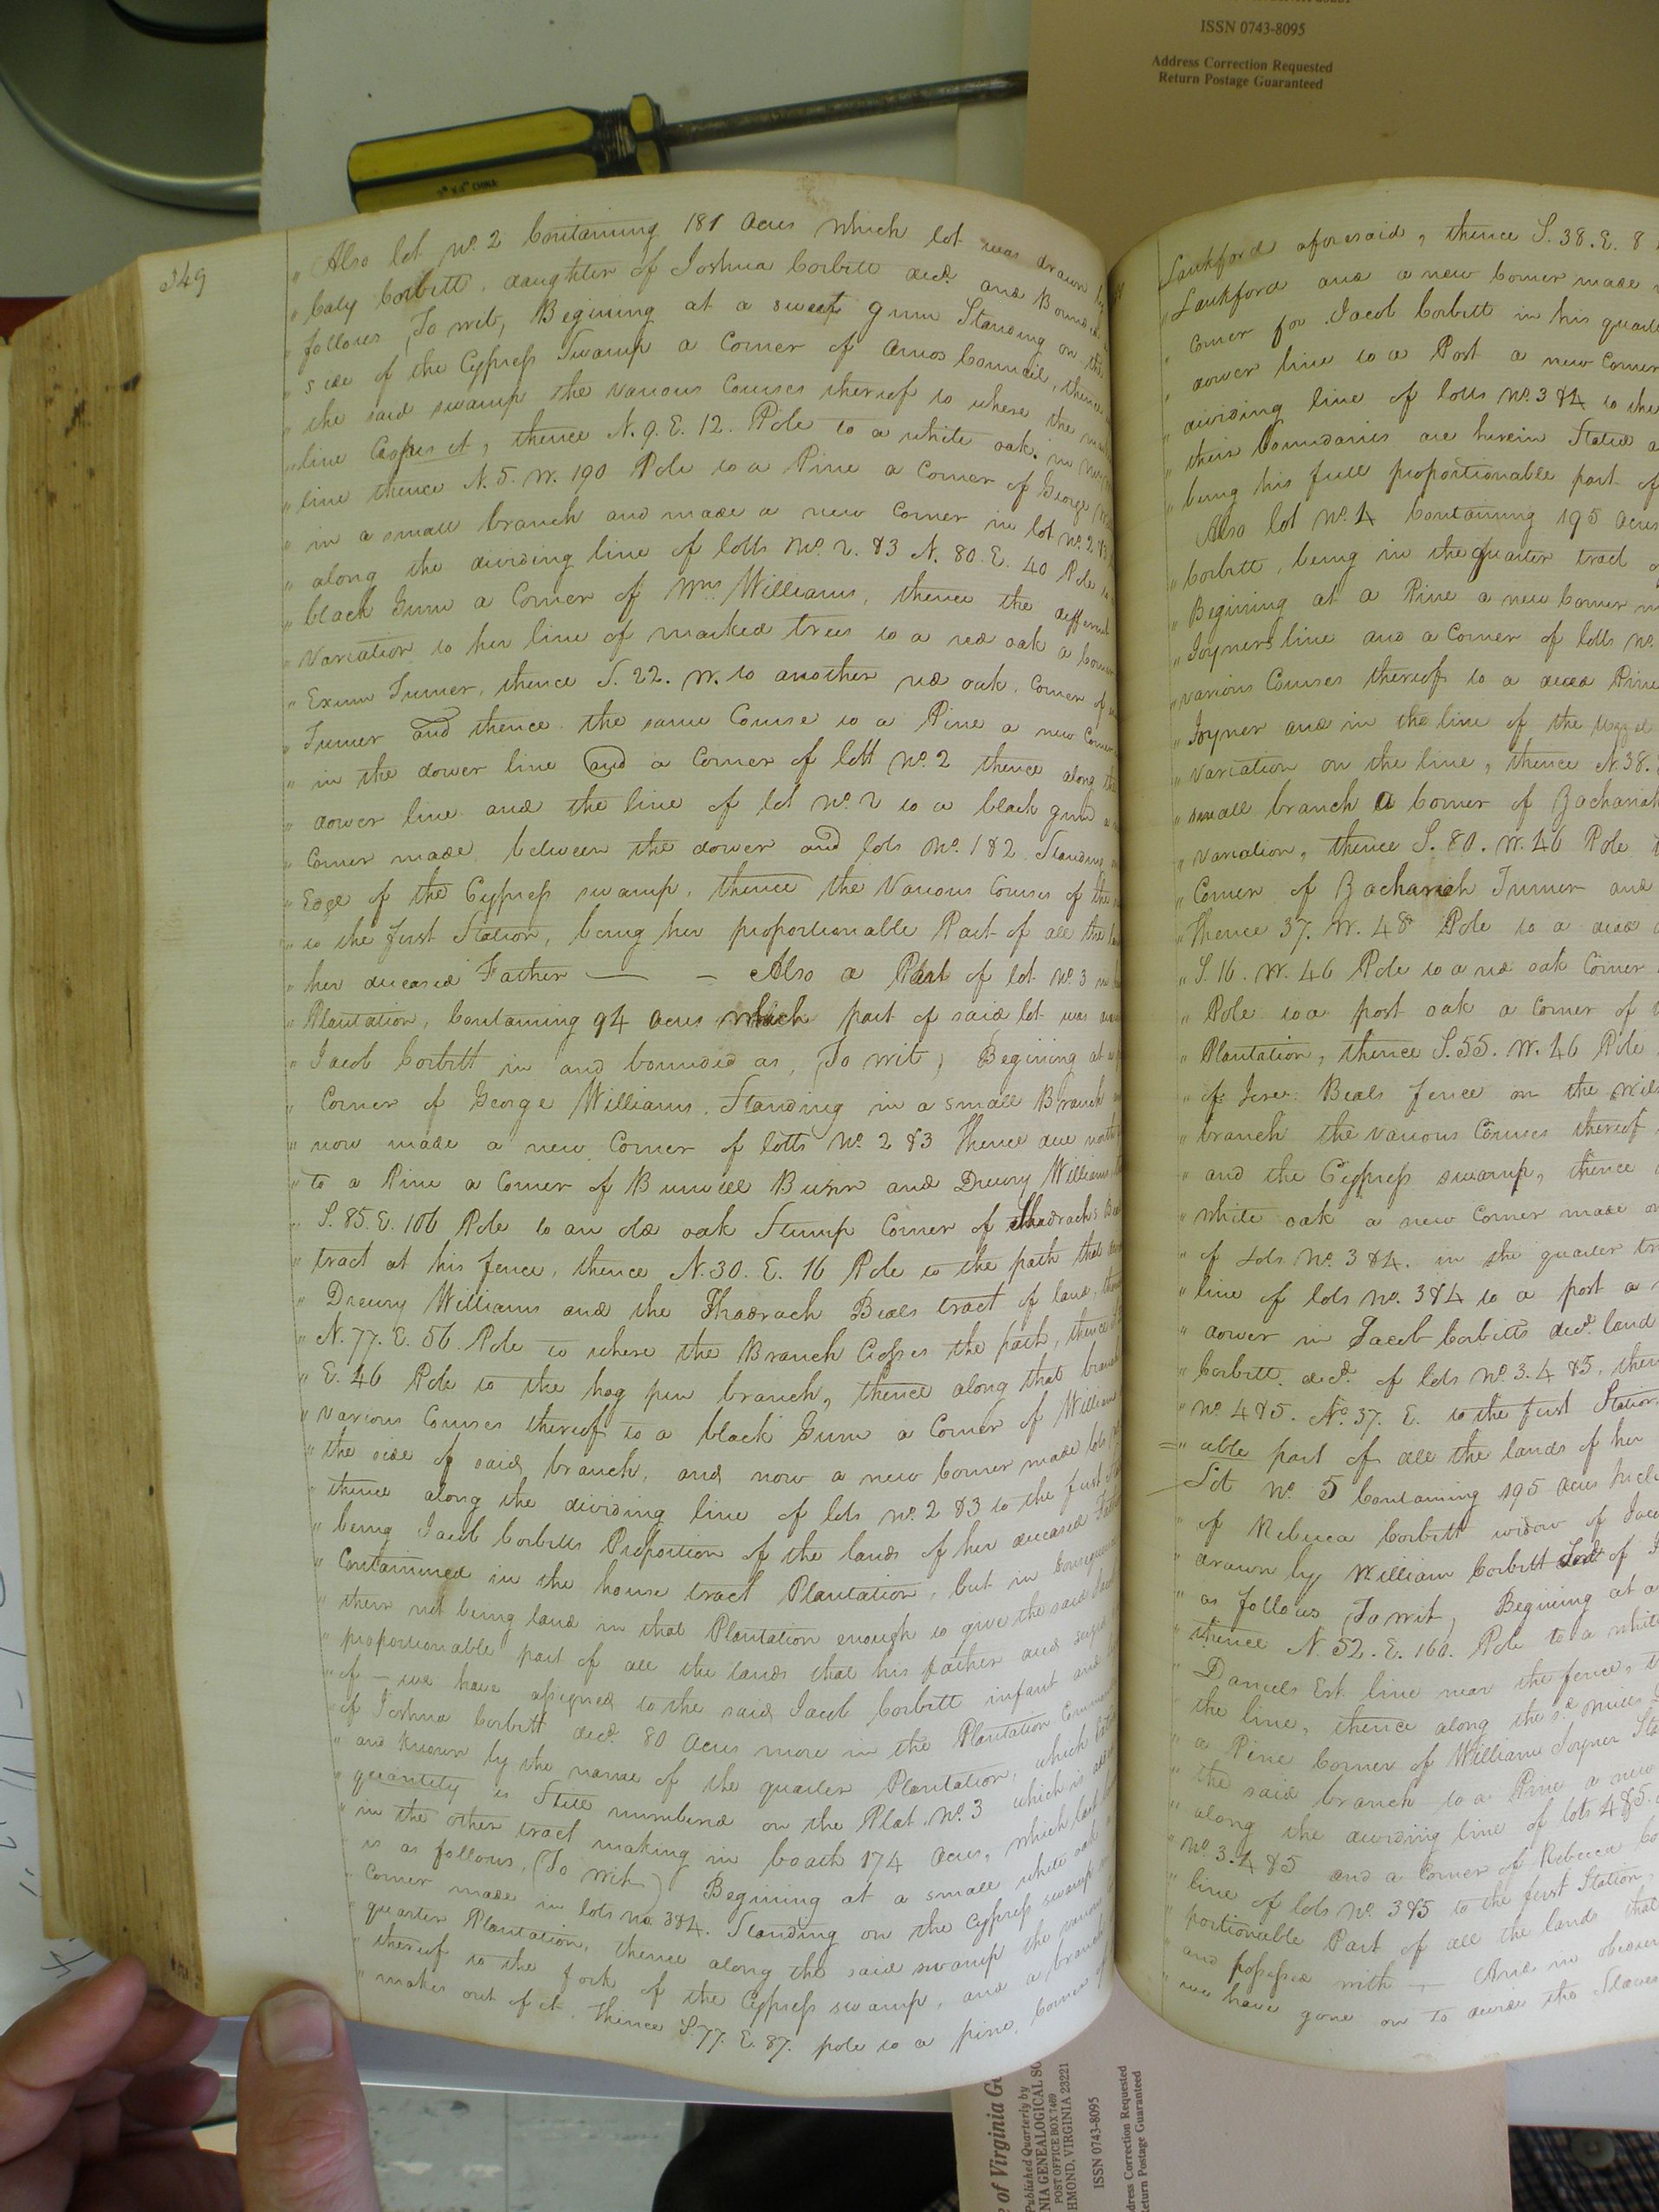 ISSN 0743-8095
Address Correction Requested
Return Postage Guaranteed
CHINA
349
" Also lot No. 2 Containing 181 Acres which lot was drawn by
" Caty Corbitt, daughter of Joshua Corbitt decd. and Bounded
" follows, To wit, Begining at a sweet gum Standing on the
" side of the Cypress Swamp a Corner of Amos Council, thence
" the said swamp the various Courses thereof to where the
" line Crosses it, thence N. 9. E. 12. Pole to a white oak in
" line thence N. 5. W. 190 Pole to a Pine a Corner of George
" in a small branch and made a new Corner in lot No. 2 &3
" along the dividing line of lotts No. 2. &3 N. 80. E. 40 Pole to
" black Gum a Corner of Wm. Williams, thence the
" Variation to her line of marked trees to a red oak a
" Exum Turner, thence S. 22. W. to another red oak, Corner of
" Turner and thence the same Course to a Pine a new Corner
" in the dower line and a Corner of lott No. 2 thence along the
" dower line and the line of lot No. 2 to a black gum a
" Corner made between the dower and lots No. 1 &2 Standing
" Edge of the Cypress swamp, thence the Various Courses of the
" to the first Station, being her proportionable Part of all the
" her deceased Father — — Also a Part of lot No. 3
" Plantation, Containing 94 Acres which part of said lot was
" Jacob Corbitt in and bounded as, (To wit) Begining at
" Corner of George Williams, Standing in a small Branch
" now made a new Corner of lotts No. 2 &3 Thence due north
" to a Pine a Corner of Burwell and Drewry Williams
" S. 85. E. 106 Pole to an old oak Stump Corner of Shadrachs
" tract at his fence, thence N. 30. E. 16 Pole to the path that
" Drewry Williams and the Shadrach Beals tract of land,
" N. 77. E. 56. Pole to where the Branch Crosses the path, thence
" E. 46 Pole to the hog pen branch, thence along that branch
" various Courses thereof to a black Gum a Corner of William
" the side of said branch, and now a new Corner made lots
" thence along the dividing line of lots No. 2 &3 to the first
" being Jacob Corbitts Proportion of the lands of her deceased
" Contained in the house tract Plantation, but in Consequence
" their not being land in that Plantation enough to give the said
" proportionable part of all the lands that his father
" of — we have assigned to the said Jacob Corbitt infant and
" of Joshua Corbitt decd. 80 Acres more in the Plantation
" and Known by the name of the quarter Plantation, which
" quantity is Still numbered on the Plat No. 3 which is
" in the other tract making in boath 174 Acres, which last
" is as follows, (To wit) Begining at a small white oak
" Corner made in lots No. 3&4. Standing on the Cypress swamp
" quarter Plantation, thence along the said swamp the various
" thereof to the fork of the Cypress swamp, and a branch
" makes out of it. Thence S. 77. E. 87. pole to a pine, Corner of
Lankford aforesaid, thence S. 38. E. 8
" Lankford and a new Corner made
" Corner for Jacob Corbitt in his
" dower line to a Post a new Corner
" dividing line of lotts No. 3 &4 to the
" their Boundaries are herein Stated
" being his full proportionable part of
" Also lot No. 4 Containing 195 Acres
" Corbitt, being in the quarter tract
" Begining at a Pine a new Corner
" Joyners line and a Corner of lotts No.
" various Courses thereof to a dead Pine
" Joyner and in the line of the
" Variation on the line, thence N. 38.
" small branch a Corner of Zachariah
" variation, thence S. 80. W. 46 Pole
" Corner of Zachariah Turner and
" Thence 37. W. 48 Pole to a dead
" S. 16. W. 46 Pole to a red oak Corner
" Pole to a post oak a Corner of
" Plantation, thence S. 55. W. 46 Pole
" of Beals fence on the
" branch the various Courses thereof
" and the Cypress swamp, thence
" white oak a new Corner made
" of Lots No. 3 &4. in the quarter
" line of lots No. 3&4 to a post a
" dower in Jacob Corbitts decd. land
" Corbitt decd. of lots No. 3. 4 &5,
" No. 4 &5. N. 37. E. to the first Station
=" able part of all the lands of her
Lot No. 5 Containing 195 Acres
" of Rebecca Corbitt widow of
" drawn by William Corbitt of
" as follows, To wit, Begining at a
" thence N. 52. E. 160. Pole to a white
" Daniels Est. line near the fence,
" the line, thence along the
" a Pine Corner of William Joyner
" the said branch to a Pine a new
" along the dividing line of lots 4&5.
" No. 3. 4 &5 and a Corner of Rebecca
" line of lots No. 3 &5 to the first Station,
" portionable Part of all the lands that
" and possessed with — And in
" we have gone on to divide the Slaves
of Virginia
Published Quarterly by
GENEALOGICAL
POST OFFICE BOX 7469
VIRGINIA 23221
ISSN 0743-8095
Address Correction Requested
Return Postage Guaranteed